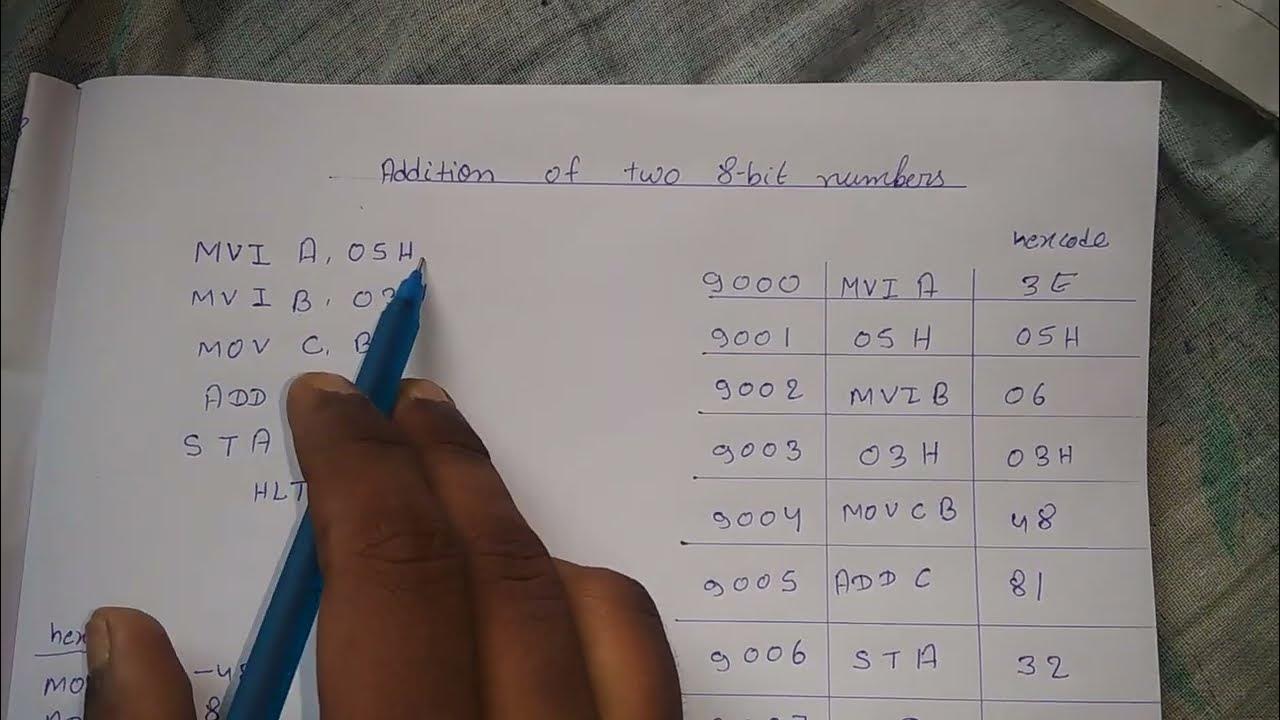 Addition of two 8-bit numbers
MVI A, 05H
MVI B, 03
MOV C, B
ADD
STA
HLT
hexcode
9000 MVI A 3E
9001 05H 05H
9002 MVI B 06
9003 03H 03H
9004 MOV C B 48
9005 ADD C 81
9006 STA 32